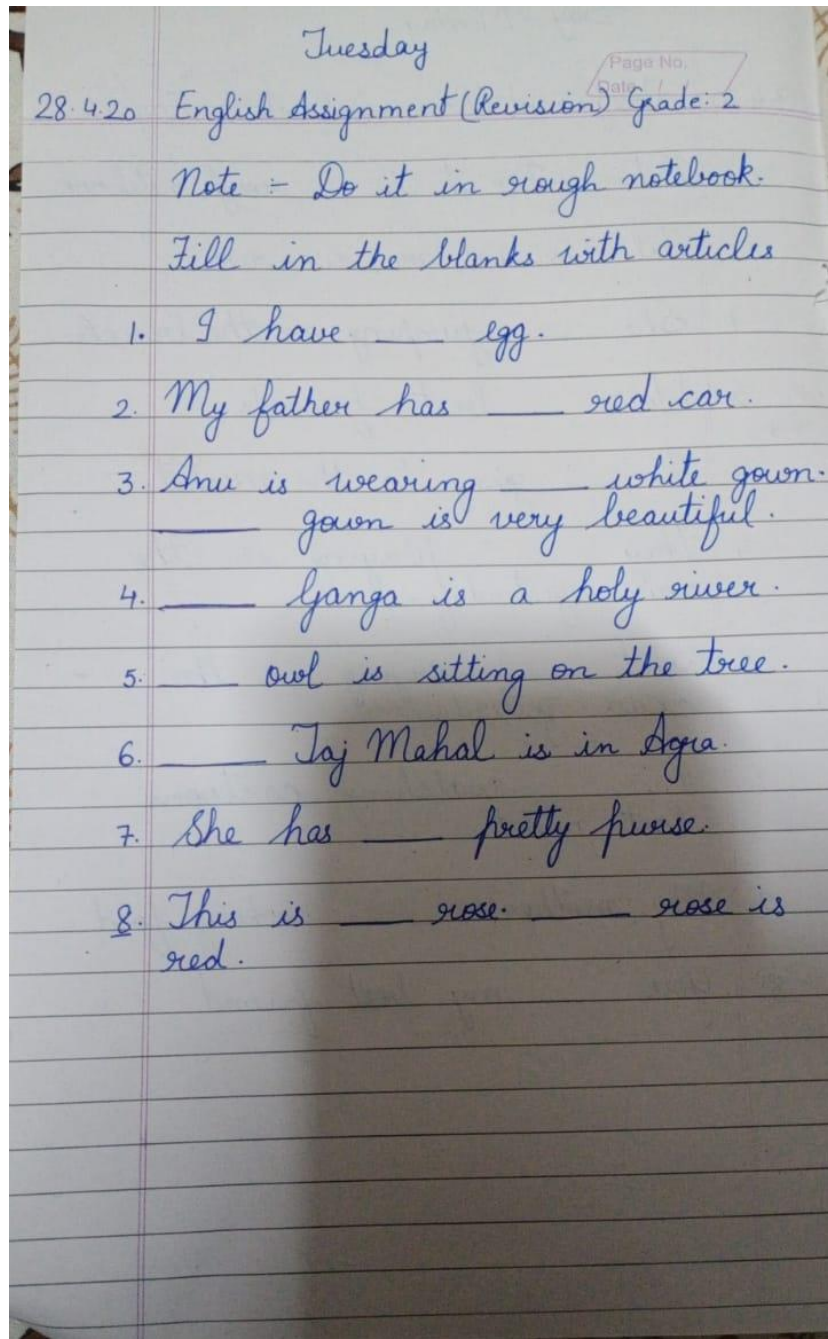 Tuesday
Page No.
Date / /
28.4.20 English Assignment (Revision) Grade: 2
Note :- Do it in rough notebook.
Fill in the blanks with articles
1. I have ___ egg.
2. My father has ___ red car.
3. Anu is wearing ___ white gown.
___ gown is very beautiful.
4. ___ Ganga is a holy river.
5. ___ owl is sitting on the tree.
6. ___ Taj Mahal is in Agra.
7. She has ___ pretty purse.
8. This is ___ rose. ___ rose is
red.